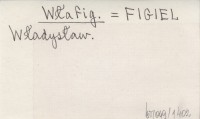 Wła Fig. = FIGIEL
Władysław.